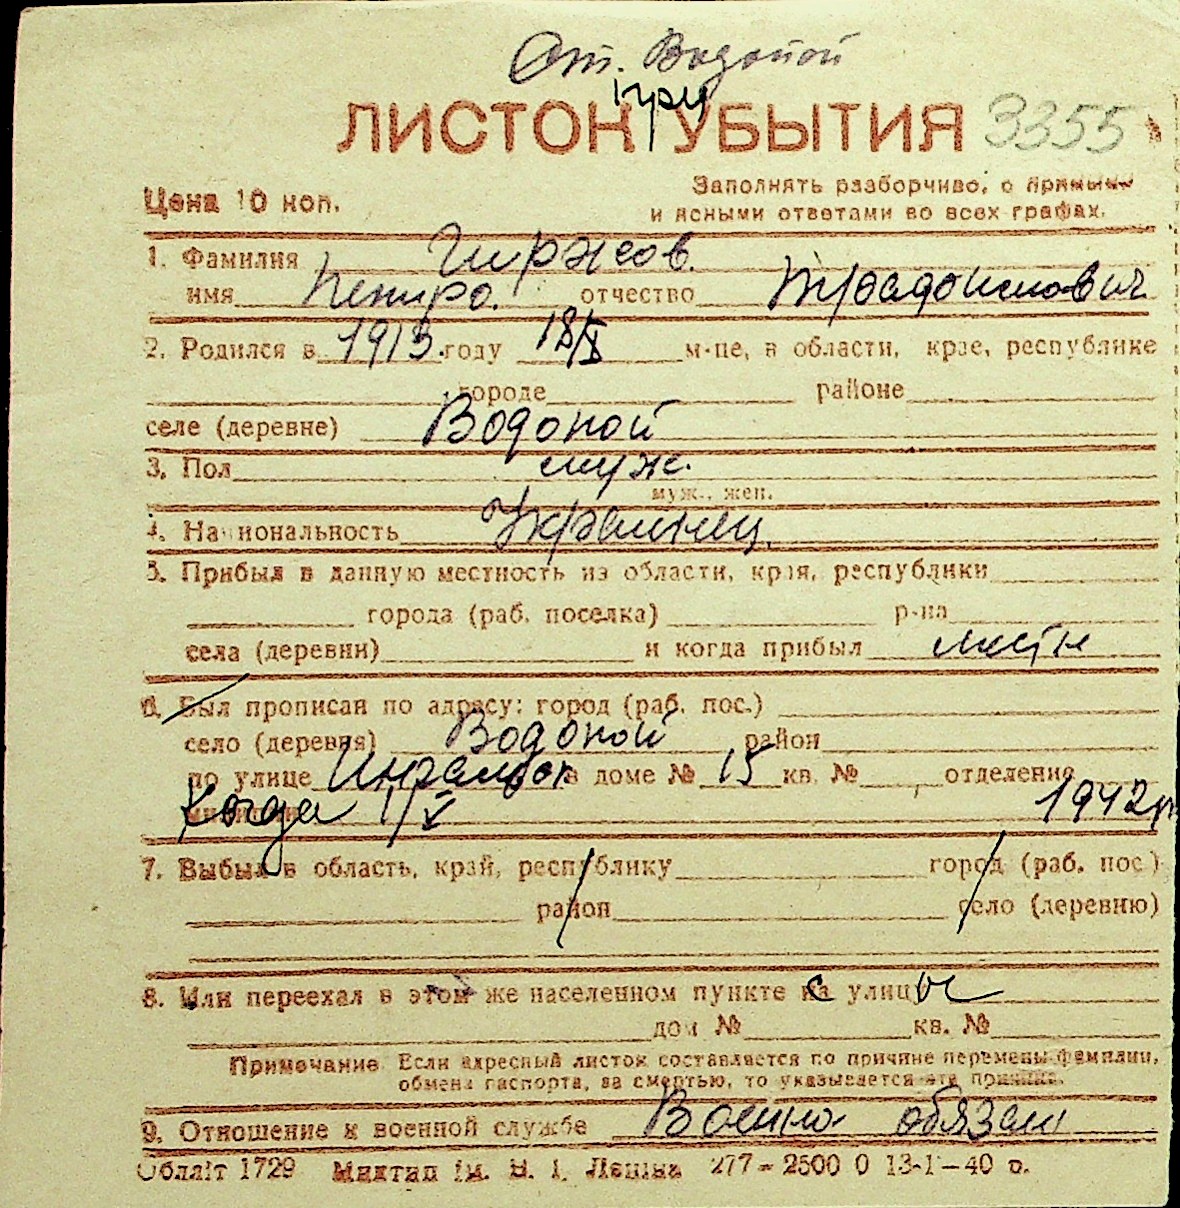 Ст. Водопой
при
ЛИСТОК УБЫТИЯ 3355
Цена 10 коп.
Заполнять разборчиво, с прямыми
и ясными ответами во всех графах.
1. Фамилия Гиржов.
имя Петро. отчество
2. Родился в 1913 году 18/X м-це, в области, крае, республике
городе районе
селе (деревне) Водопой
3. Пол муж.
муж., жен.
4. Национальность Украинец.
5. Прибыл в данную местность из области, края, республики
города (раб. поселка) р-на
села (деревни) и когда прибыл
6. Был прописан по адресу: город (раб. пос.)
село (деревня) Водопой район
по улице в доме № 15 кв. № отделения
милиции Когда 1/V 1942 г.
7. Выбыл в область, край, республику город (раб. пос.)
район село (деревню)
8. Или переехал в этом же населенном пункте на улицу
дом № кв. №
Примечание Если адресный листок составляется по причине перемены фамилии,
обмена паспорта, за смертью, то указывается эта причина.
9. Отношение к военной службе Военно обязан
Обліт 1729 Миктип ім. В. І. Леніна 277—2500 0 13-1—40 р.